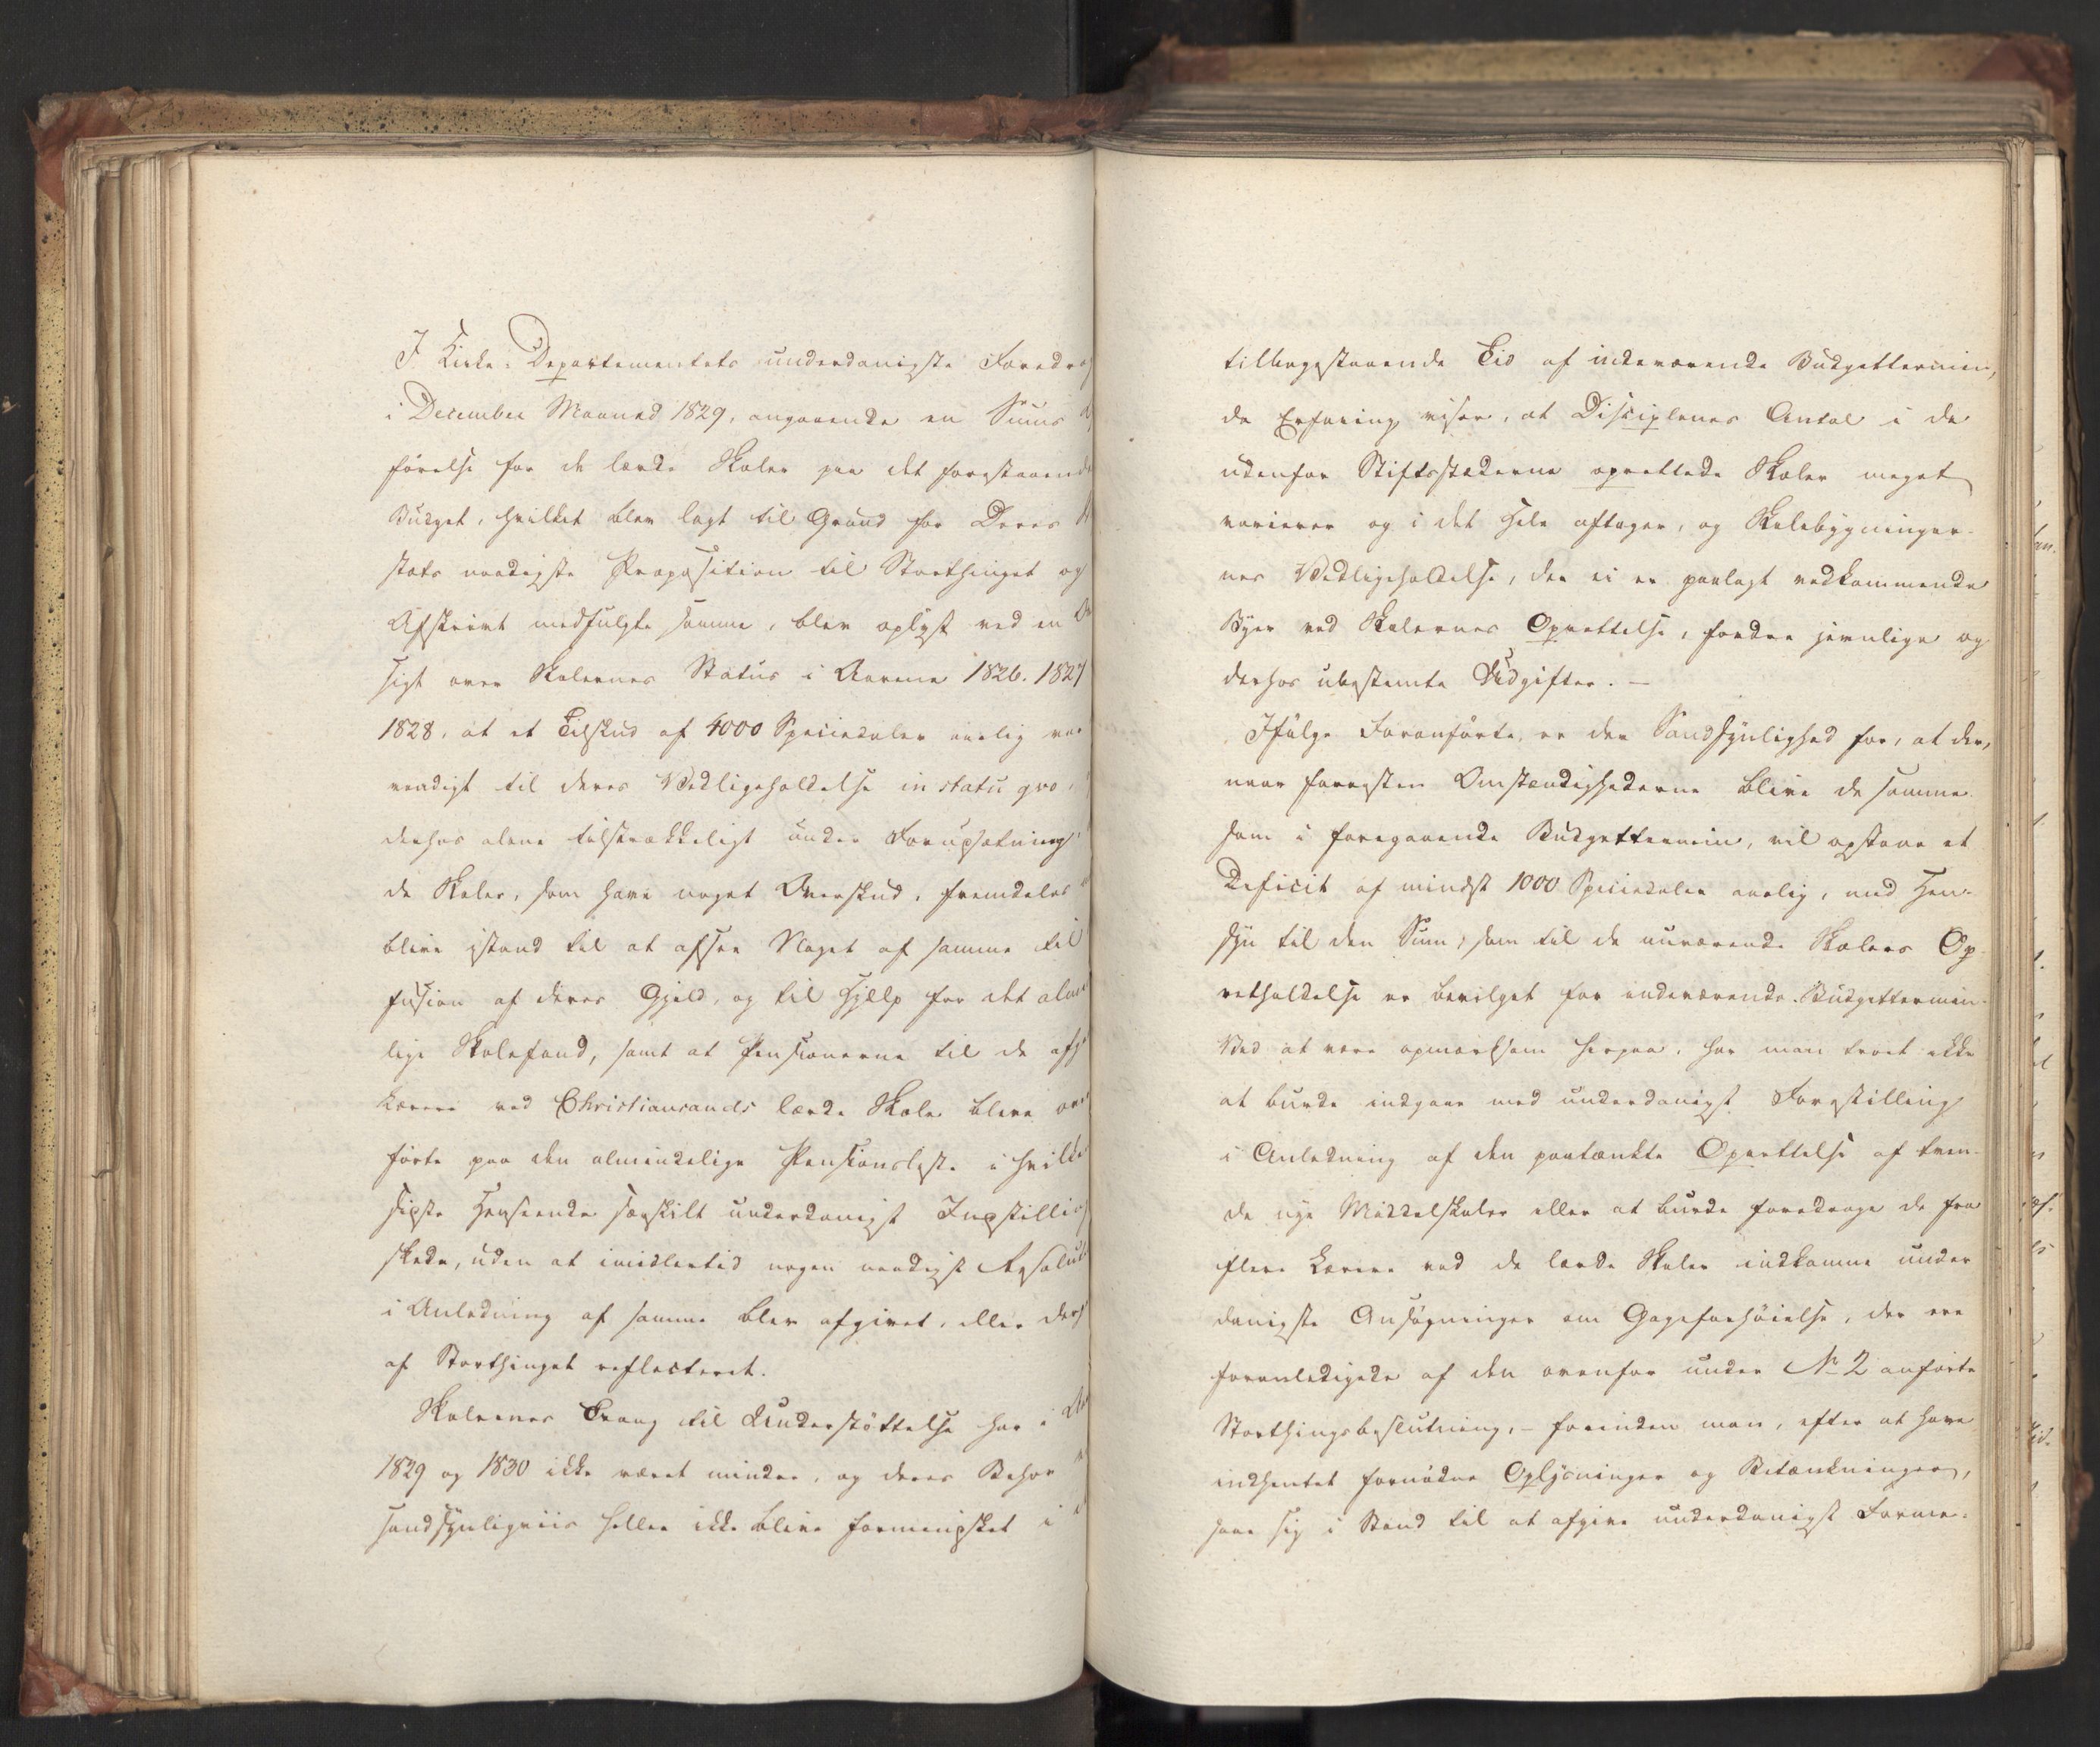 I Kirke-Departementets underdanigste Foredrag
i December Maaned 1829, angaaende en Sums
førelse for de lærde Skoler paa det forestaaende
Budget, hvilket blev lagt til Grund for Deres
stæts naadigste Proposition til Storthinget og
Afskrivt medfulgte samme, blev oplyst ved en
sigt over Skolernes Status i Aarene 1826. 1827
1828, at et Tilskud af 4000 Speciedaler aarlig var
nøadigt til deres Vedligeholdelse in statu qvo,
derhos alene tilstrækkeligt under Forudsætning
de Skoler, som have noget Overskud, fremdeles
blive istand til at afsee Noget af samme til
fusion af deres Gjeld, og til Hjelp for det almi
lige Skolefond, samt at Pensionerne til de afg
Lærere ved Christiansands lærde Skole bleve over
førte paa den almindelige Pensionsliste i hvilke
sidste Henseende særskilt underdanigst Indstilling
skede, uden at imidlertid nogen naadigst Resoluti
i Anledning af samme blev afgivet, eller derp
af Storthinget reflecteret.
Skolernes Trang til Understøttelse har i Aar
1829 og 1830 ikke været mindre, og deres Behov
sandsynligviis heller ikke blive formindsket i
tilbagestaaende Tid af indeværende Budgettermin,
da Erfaring viser, at Disciplenes Antal i de
udenfor Stiftsstæderne oprettede Skoler meget
varierer og i det Hele aftager, og Skolebygninger-
nes Vedligeholdelse, der ei er paalagt vedkommende
Byer ved Skolernes Oprettelse, fordre jevnlige og
derhos ubestemte Udgifter. —
Ifølge Foranførte er der Sandsynlighed for, at der,
naar forresten Omstændighederne blive de samme
som i foregaaende Budgettermin, vil opstaae et
Deficit af mindst 1000 Speciedaler aarlig, med Hen-
syn til den Sum, som til de nuværende Skolers Op-
retholdelse er bevilget for indeværende Budgettermin.
Ved at være opmærksom herpaa, har man troet ikke
at burde indgaae med underdanigst Forestilling
i Anledning af den paatænkte Oprettelse af tven-
de nye Middelskoler eller at burde foredrage de fra
flere Lærere ved de lærde Skoler indkomne under
danigste Ansøgninger om Gageforhøielse, der ere
foranledigede af den ovenfor under No 2 anførte
Storthingsbeslutning, – forinden man, efter at have
indhentet fornødne Oplysninger og Betænkninger,
saae sig i Stand til at afgive underdanigst Forme-